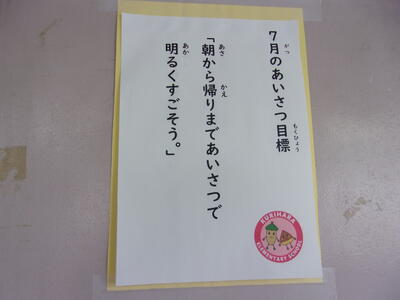 7月のあいさつ目標
「朝から帰りまであいさつで
明るくすごそう。」
KURIHARA
ELEMENTARY SCHOOL